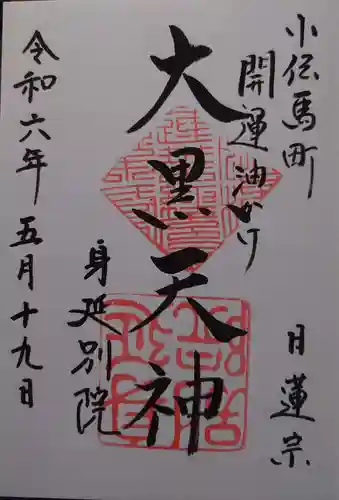 小伝馬町
日蓮宗
開運油かけ
大黒天神
身延別院
令和六年五月十九日